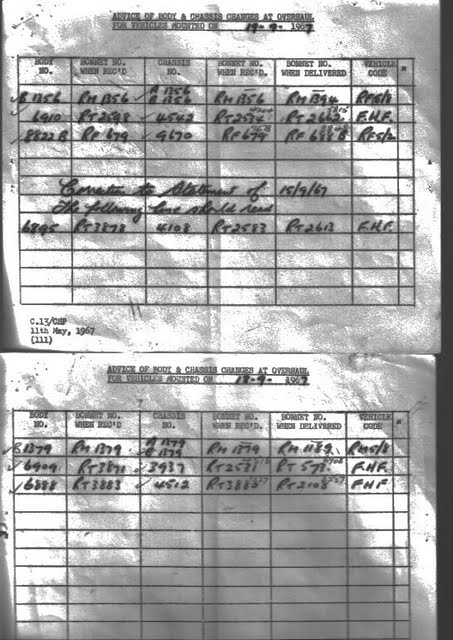 ADVICE OF BODY & CHASSIS CHANGES AT OVERHAUL
FOR VEHICLES MOUNTED ON 19-9- 1967
BODY NO. BONNET NO. WHEN REC'D CHASSIS NO. BONNET NO. WHEN REC'D. BONNET NO. WHEN DELIVERED VEHICLE CODE *
✓ B 1356 RM 1356 ✓ A 1356 B 1356 RM 1356 RM 1394 RF5/8
✓ 6910 RT 2598 ✓ 4542 RT 2534 RT 2662 F.H.F.
✓ 8822 R RF 679 ✓ 9670 RF 679 RF 688 RF5/2
Correction to Statement of 15/9/67
The following line should read
6895 RT 3878 4108 RT 2583 RT 2613 F.H.F.
C.13/CHP
11th May, 1967
(111)
ADVICE OF BODY & CHASSIS CHANGES AT OVERHAUL
FOR VEHICLES MOUNTED ON 18-9- 1967
BODY NO. BONNET NO. WHEN REC'D CHASSIS NO. BONNET NO. WHEN REC'D. BONNET NO. WHEN DELIVERED VEHICLE CODE *
✓ B 1379 RM 1379 ✓ A 1379 B 1379 RM 1379 RM 1189 RM5/8
✓ 6909 RT 3871 ✓ 3937 F.H.F.
✓ 6888 RT 3883 ✓ 4512 RT 2108 F.H.F